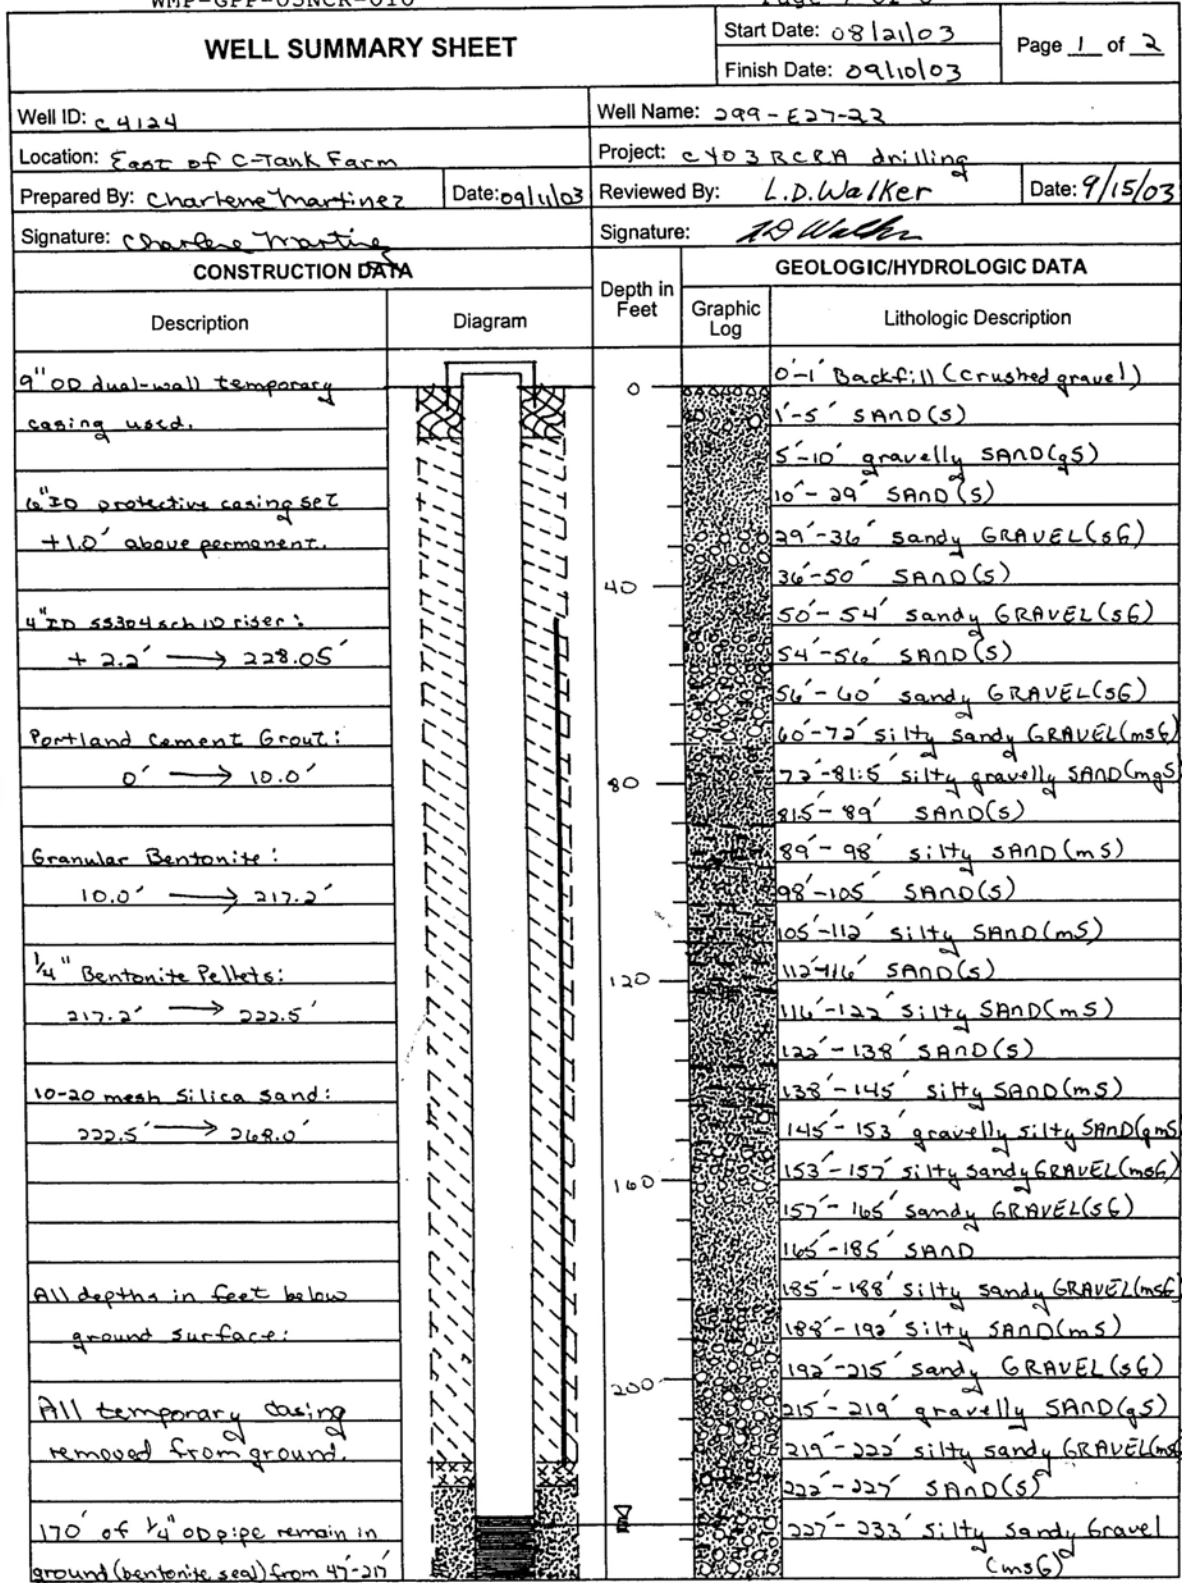 WMP-GPP-OSNCR-010
Page 7 of 8
WELL SUMMARY SHEET
Start Date: 08/21/03
Finish Date: 09/10/03
Page 1 of 2
Well ID: C4124
Well Name: 299-E27-22
Location: East of C-Tank Farm
Project: CY03 RCRA drilling
Prepared By: Charlene Martinez
Date: 09/11/03
Reviewed By: L.D. Walker
Date: 9/15/03
Signature: Charlene Martinez
Signature: LD Walker
CONSTRUCTION DATA
Depth in Feet
GEOLOGIC/HYDROLOGIC DATA
Description
Diagram
Graphic Log
Lithologic Description
9" OD dual-wall temporary
casing used.
6" ID protective casing set
+1.0' above permanent.
4" ID SS304 sch 10 riser:
+ 2.2' → 228.05'
Portland Cement Grout:
0' → 10.0'
Granular Bentonite:
10.0' → 217.2'
1/4" Bentonite Pellets:
217.2' → 222.5'
10-20 mesh Silica Sand:
222.5' → 268.0'
All depths in feet below
ground surface:
All temporary casing
removed from ground.
170' of 1/4" OD pipe remain in
ground (bentonite seal) from 47'-217'
0
40
80
120
160
200
0'-1' Backfill (crushed gravel)
1'-5' SAND (S)
5'-10' gravelly SAND (gS)
10'-29' SAND (S)
29'-36' sandy GRAVEL (sG)
36'-50' SAND (S)
50'-54' sandy GRAVEL (sG)
54'-56' SAND (S)
56'-60' sandy GRAVEL (sG)
60'-72' silty sandy GRAVEL (msG)
72'-81.5' silty gravelly SAND (mgS)
81.5'-89' SAND (S)
89'-98' silty SAND (mS)
98'-105' SAND (S)
105'-112' silty SAND (mS)
112'-116' SAND (S)
116'-122' silty SAND (mS)
122'-138' SAND (S)
138'-145' silty SAND (mS)
145'-153' gravelly silty SAND (gmS
153'-157' silty sandy GRAVEL (msG)
157'-165' sandy GRAVEL (sG)
165'-185' SAND
185'-188' silty sandy GRAVEL (msG
188'-192' silty SAND (mS)
192'-215' sandy GRAVEL (sG)
215'-219' gravelly SAND (gS)
219'-222' silty sandy GRAVEL (ms
222'-227' SAND (S)
227'-233' silty sandy Gravel
(msG)